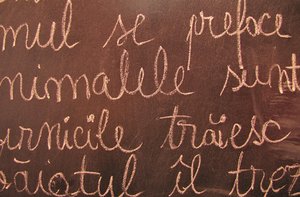 mul se preface
nimalele sunt
urnicile trăiesc
băiatul îl trez